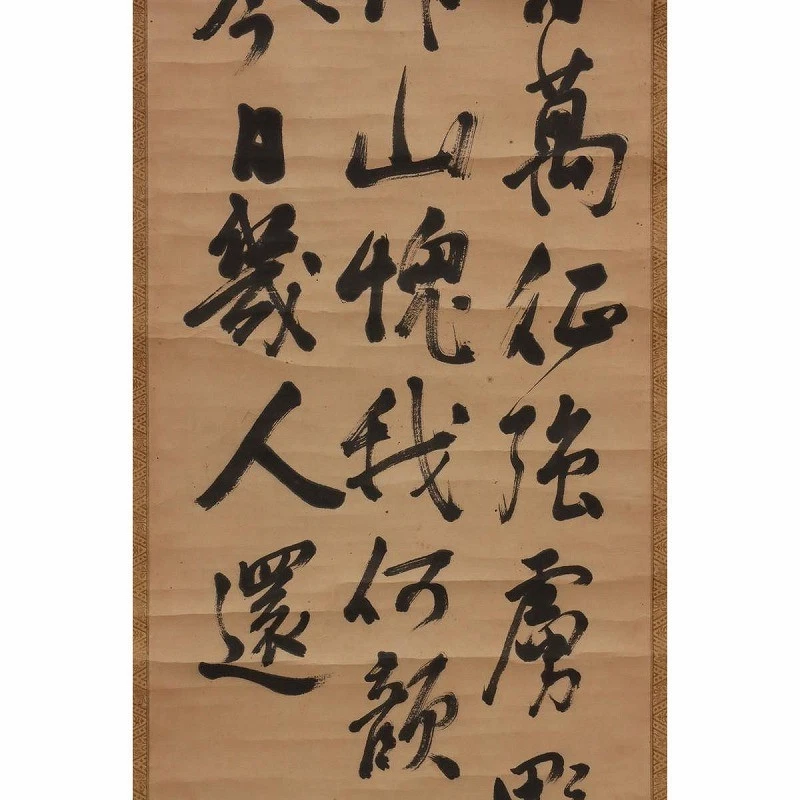 萬征強虜
山愧我何顔
今日幾人還